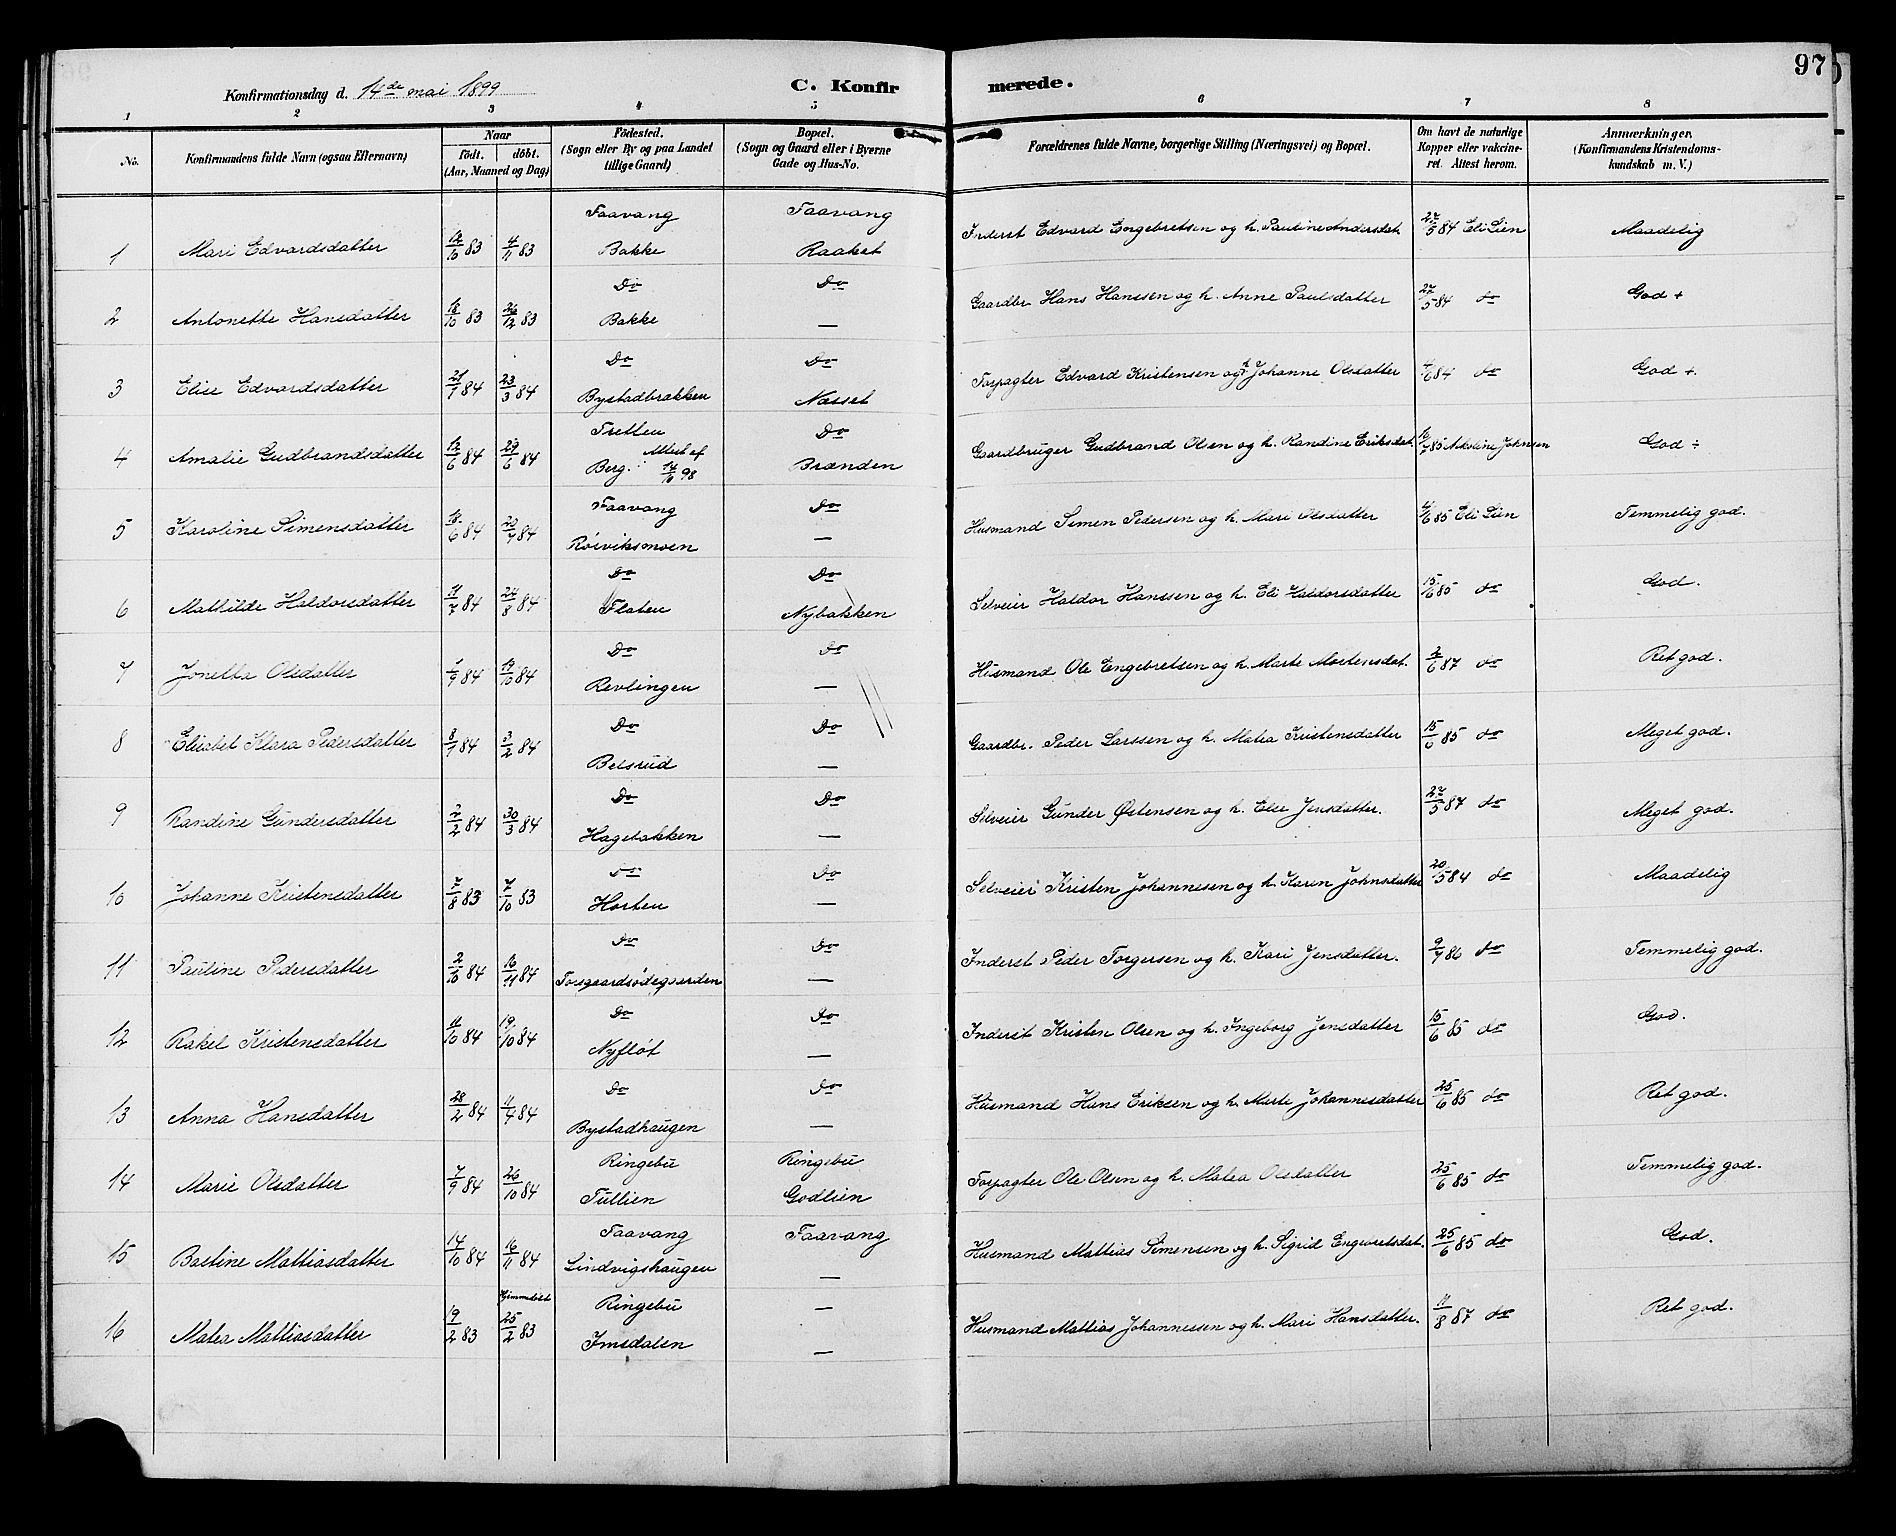 97
Konfirmationsdag d. 14de mai 1899
C. Konfirmerede.
1 2 3 4 5 6 7 8
No. | Konfirmandens fulde Navn (ogsaa Efternavn) | Naar født. døbt. (Aar, Maaned og Dag) | Fødested. (Sogn eller By og paa Landet tillige Gaard) | Bopæl. (Sogn og Gaard eller i Byerne Gade og Hus-No. | Forældrenes fulde Navne, borgerlige Stilling (Næringsvei) og Bopæl. | Om havt de naturlige Kopper eller vakcineret. Attest herom. | Anmærkninger. (Konfirmandens Kristendomskundskab m. V.)
1 Mari Edvardsdatter | 83 | 4/11 83 | Faavang Bakke | Faavang Raaket | Inderst Edvard Engebretsen og h. Pauline Andersdat. | 27/5 84 Eli Lien | Maadelig
2 Antonette Hansdatter | 18/10 83 | 26/12 83 | Do Bakke | Do — | Gaardbr Hans Hanssen og h. Anne Paulsdatter | 27/5 84 do | God +
3 Elise Edvardsdatter | 84 | 23/3 84 | Do Bystadbrakken | Do Næsset | Forpagter Edvard Kristensen og h. Johanne Olsdatter | 84 do | God +.
4 Amalie Gudbrandsdatter | 12/6 84 | 29/6 84 | Tretten Berg. Attest af 98 | Do Brænden | Gaardbruger Gudbrand Olsen og h. Randine Eriksdat. | 85 Nikoline Johnsen | God ÷
5 Karoline Simensdatter | 18/6 84 | 20/7 84 | Faavang Røiviksmoen | Do — | Husmand Simen Pedersen og h. Mari Olsdatter | 85 Eli Lien | Temmelig god.
6 Mathilde Haldorsdatter | 11/7 84 | 24/8 84 | Do Flaten | Do Nybakken | Selveier Haldor Hanssen og h. Eli Haldorsdatter | 15/6 85 do | God.
7 Jonetta Olsdatter | 84 | 19/10 84 | Do Revlingen | do — | Husmand Ole Engebretsen og h. Marte Mortensdat. | 2/6 87 do | Ret god.
8 Elisabet Klara Pedersdatter | 8/1 84 | 3/2 84 | Do Belsrud | Do — | Gaardbr. Peder Larssen og h. Matea Kristensdatter | 15/6 85 do | Meget god.
9 Randine Gundersdatter | 2/2 84 | 30/3 84 | Do Hagebakken | Do — | Selveier Gunder Østensen og h. Else Jensdatter. | 27/5 87 do | Meget god.
10 Johanne Kristensdatter | 7/8 83 | 7/10 83 | do Horten | Do — | Selveier Kristen Johannesen og h. Karen Johnsdatter | 20/5 84 do | Maadelig
11 Pauline Pedersdatter | 2/10 84 | 16/11 84 | Do Fosgaardsødegaarden | Do — | Inderst Peder Torgersen og h. Kari Jensdatter. | 9/7 86 do | Temmelig god.
12 Rakel Kristensdatter | 11/10 84 | 19/10 84 | Do Nyfløt | Do — | Inderst Kristen Olsen og h. Ingeborg Jensdatter | 15/6 85 do | God.
13 Anna Hansdatter | 28/2 84 | 11/4 84 | Do Bystadhaugen | Do — | Husmand Hans Eriksen og h. Marte Johannesdatter | 25/6 85 do | Ret god.
14 Marie Olsdatter | 7/9 84 | 26/10 84 | Ringebu Tullien | Ringebu Godlien | Forpagter Ole Olsen og h. Matea Olsdatter | 25/6 85 do | Temmelig god.
15 Bastine Mattiasdatter | 14/10 84 | 16/11 84 | Faavang Lindvigshaugen | Faavang — | Husmand Mattias Simensen og h. Sigrid Engebretsdat. | 25/6 85 do | God.
16 Matea Mattiasdatter | 19/2 83 | Hjemmedøbt 25/2 83 | Ringebu Imsdalen | — — | Husmand Mattias Johannessen og h. Mari Hansdatter. | 11/8 87 do | Ret god.